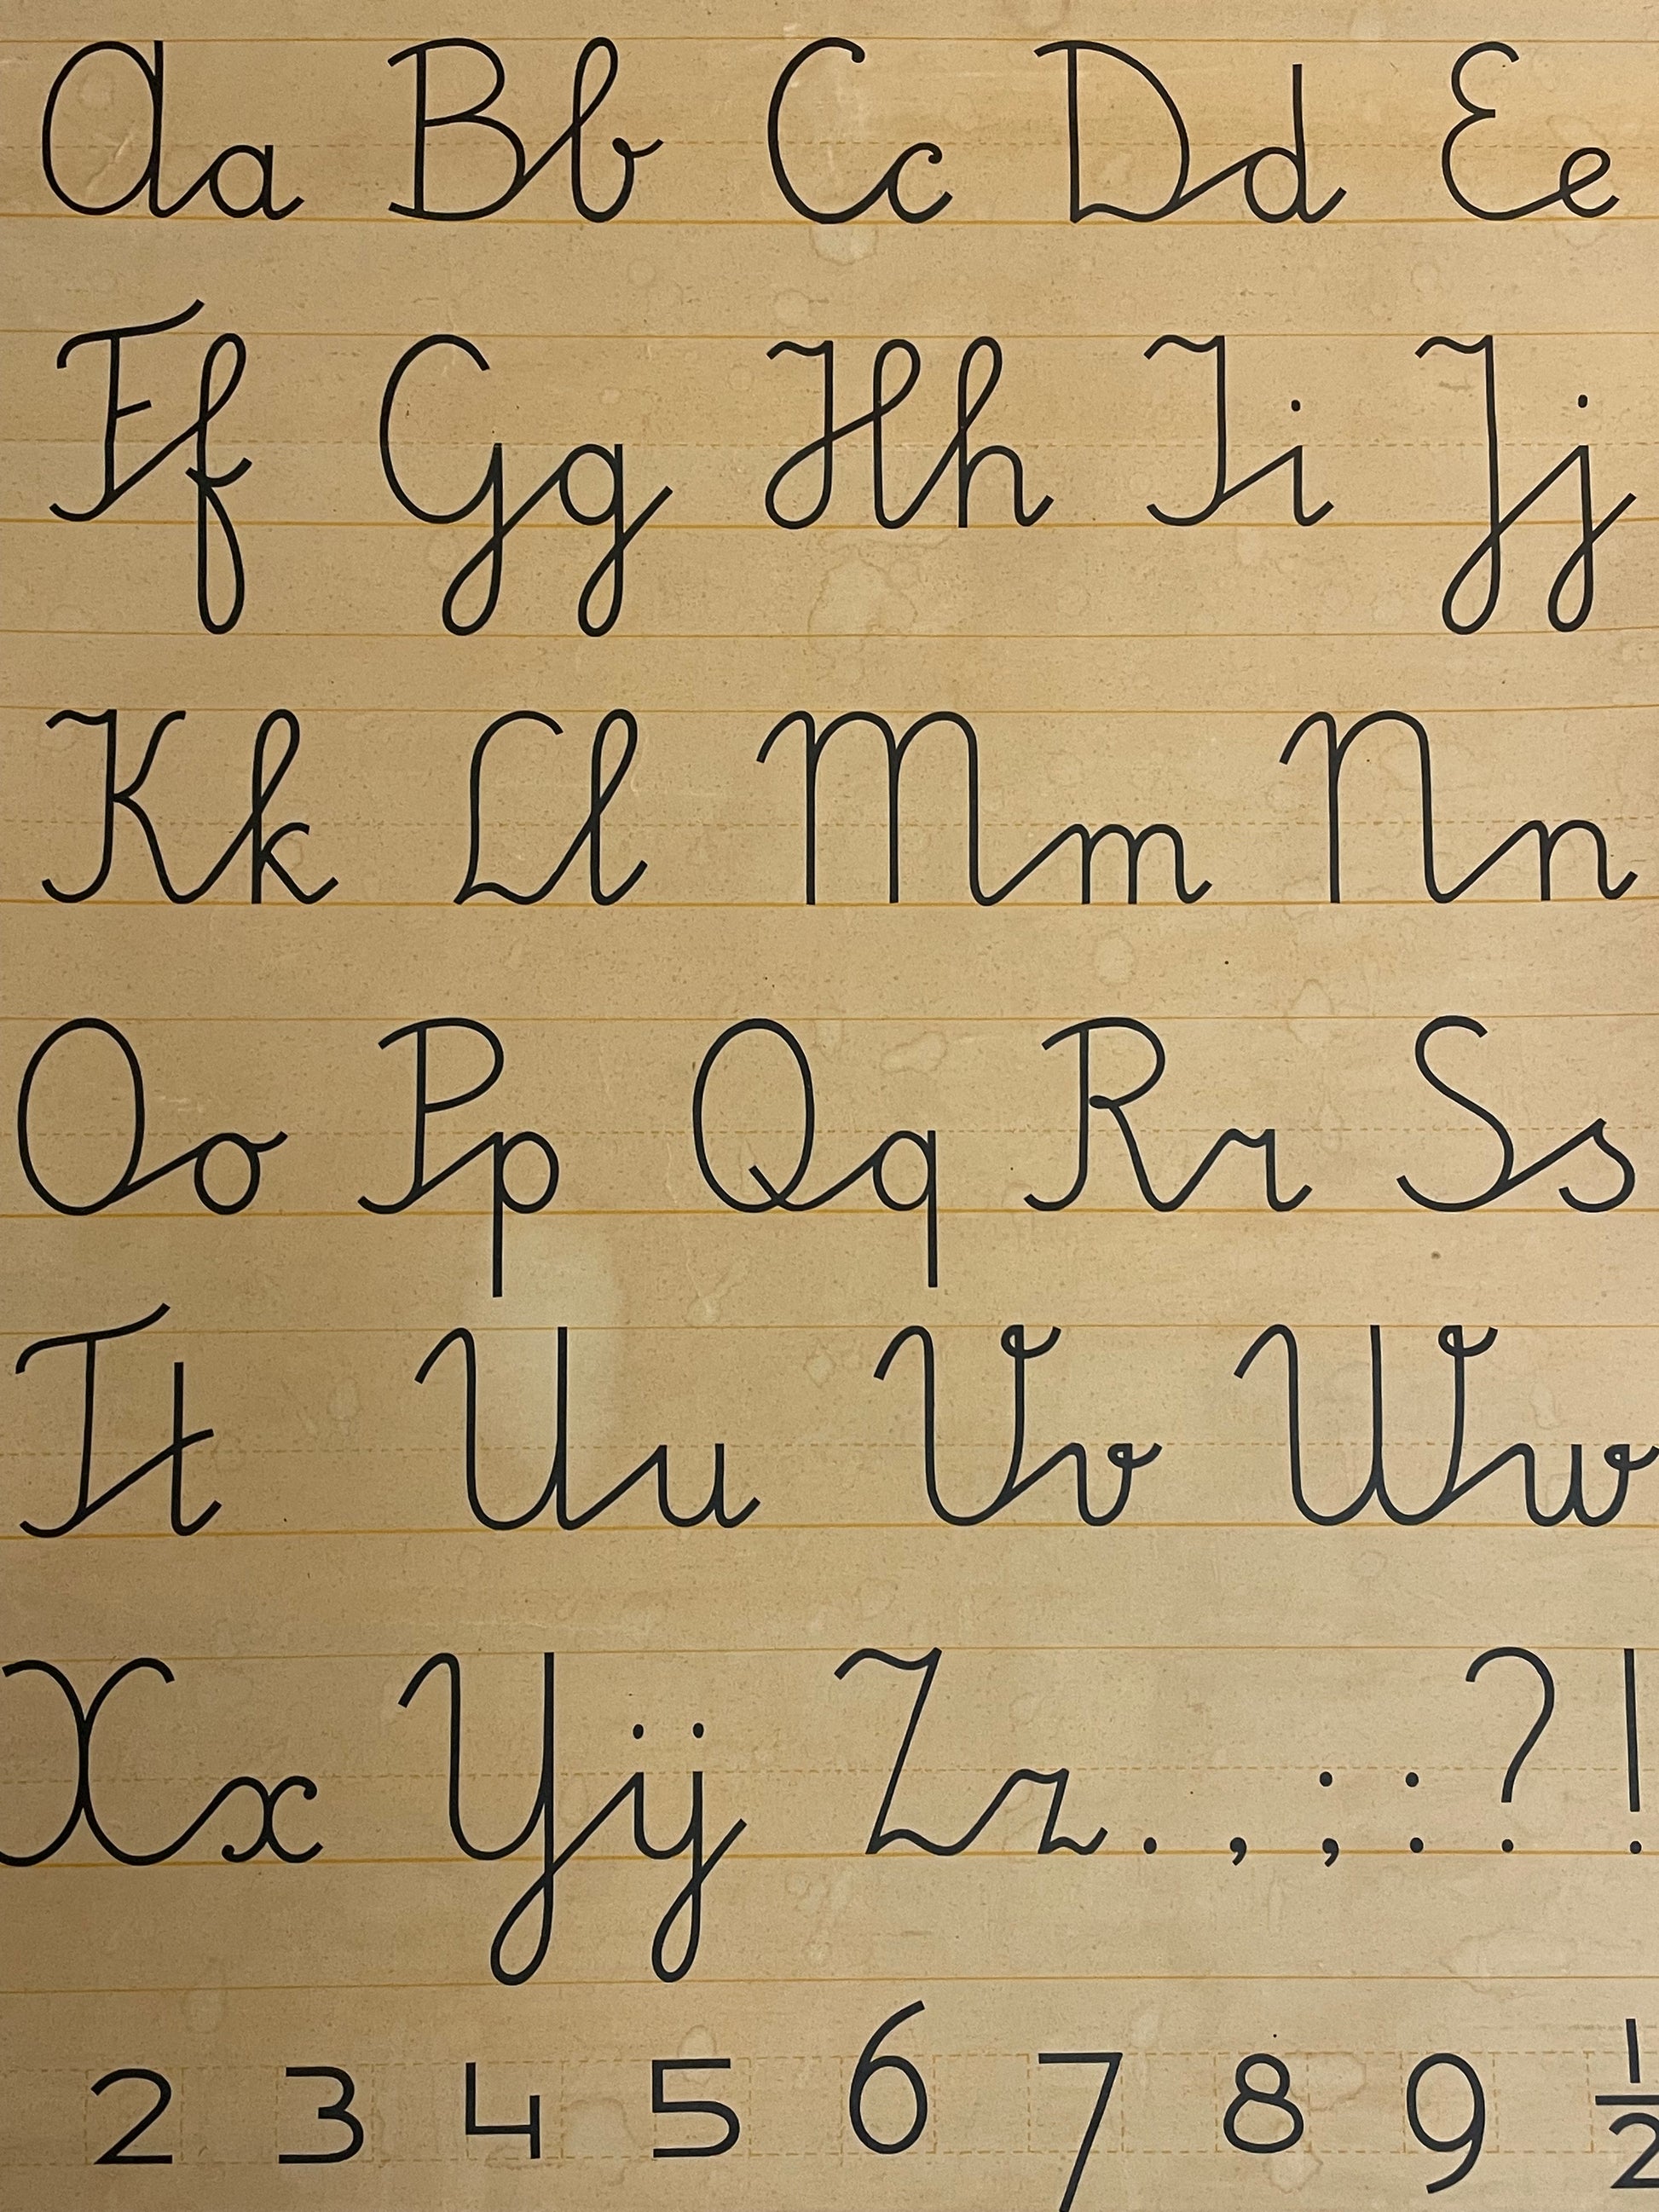 Aa Bb Cc Dd Ee
Ff Gg Hh Ii Jj
Kk Ll Mm Nn
Oo Pp Qq Rr Ss
Tt Uu Vv Ww
Xx Yij Zz . , ; : ? !
2 3 4 5 6 7 8 9 ½